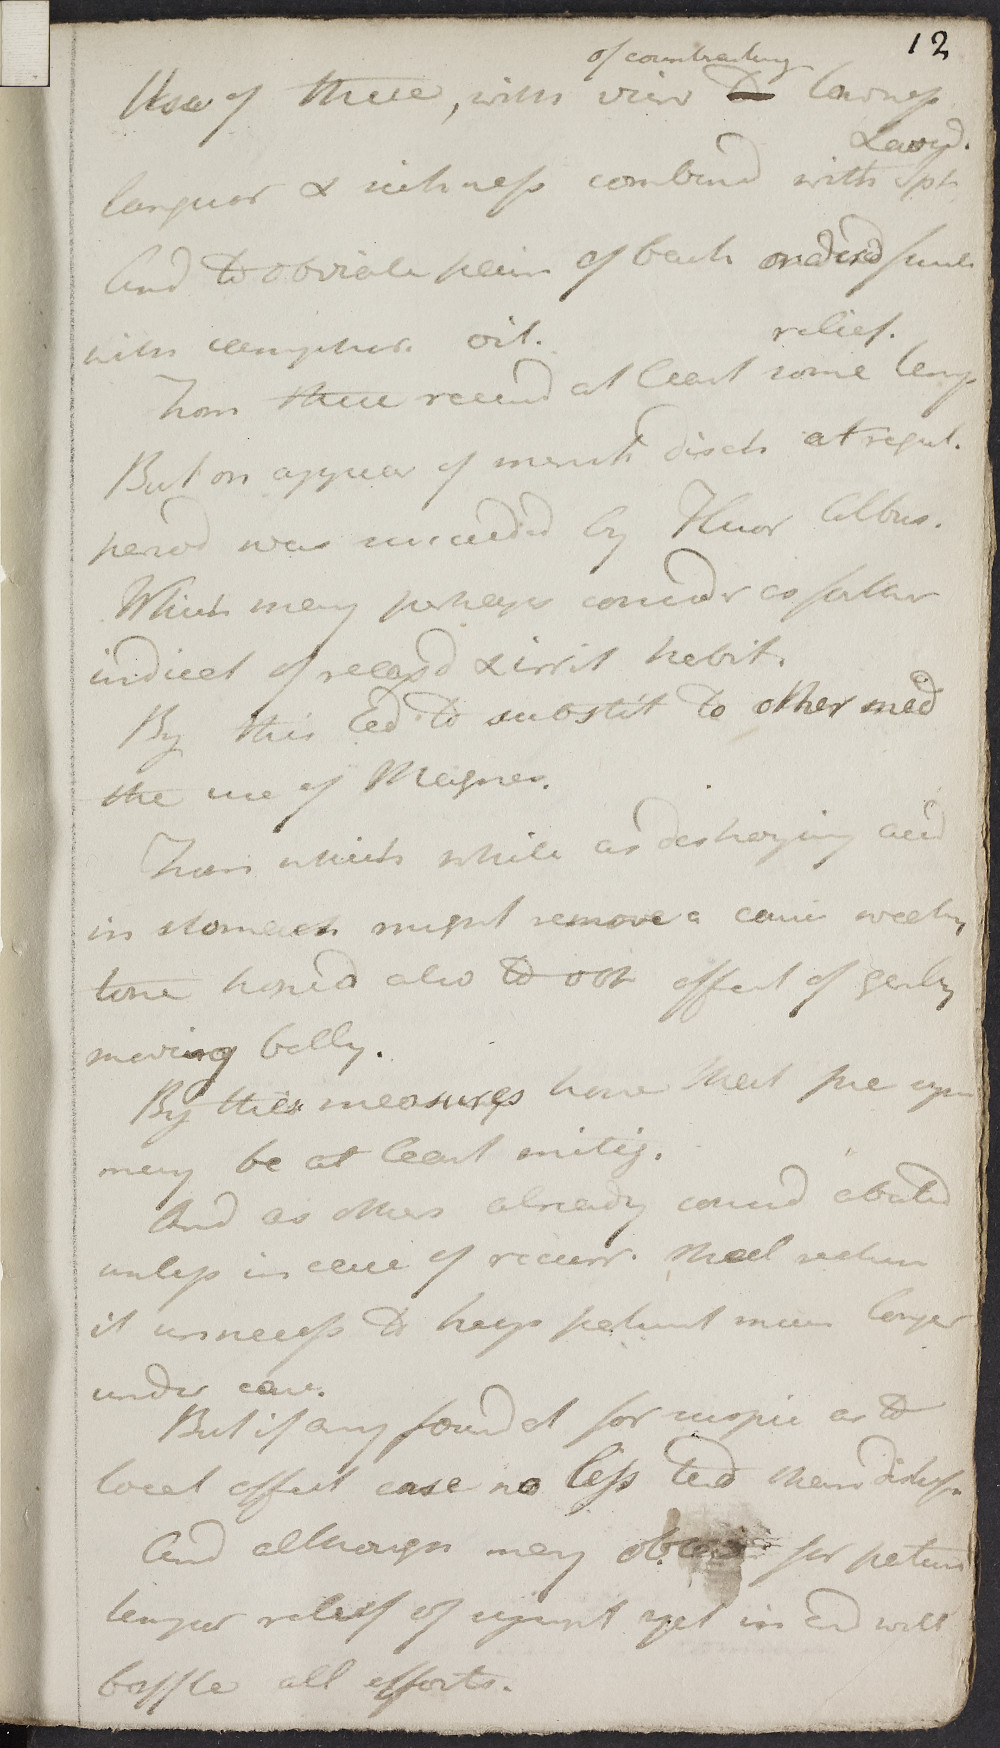 12
of counteracting
Use of these, with view to lowness
& asyd.
languor & sickness combind with sph
And to obviate pain of back ordered frict
with camphor. oil.
relief.
From these receivd at least some temp
But on appear of menst disch at regul.
period was succeeded by Fluor albus.
Which may perhaps consider as farther
indicat of relaxd & irrit habit.
By this led to substit to other med
the use of Magnes.
From which while as destroying acid
in stomach might remove a cause weakng
tone hoped also to obt effect of gently
moving belly.
By these measures hope that pre sym
may be at least mitig.
And as others already consid abated
unless in case of recurr. shall reckon
it unnecess to keep patient much longer
under care.
But if any foundat for suspic as to
local affect case no less ted than distress
And although may obtain for patient
temper relief of sympt yet in end will
baffle all efforts.